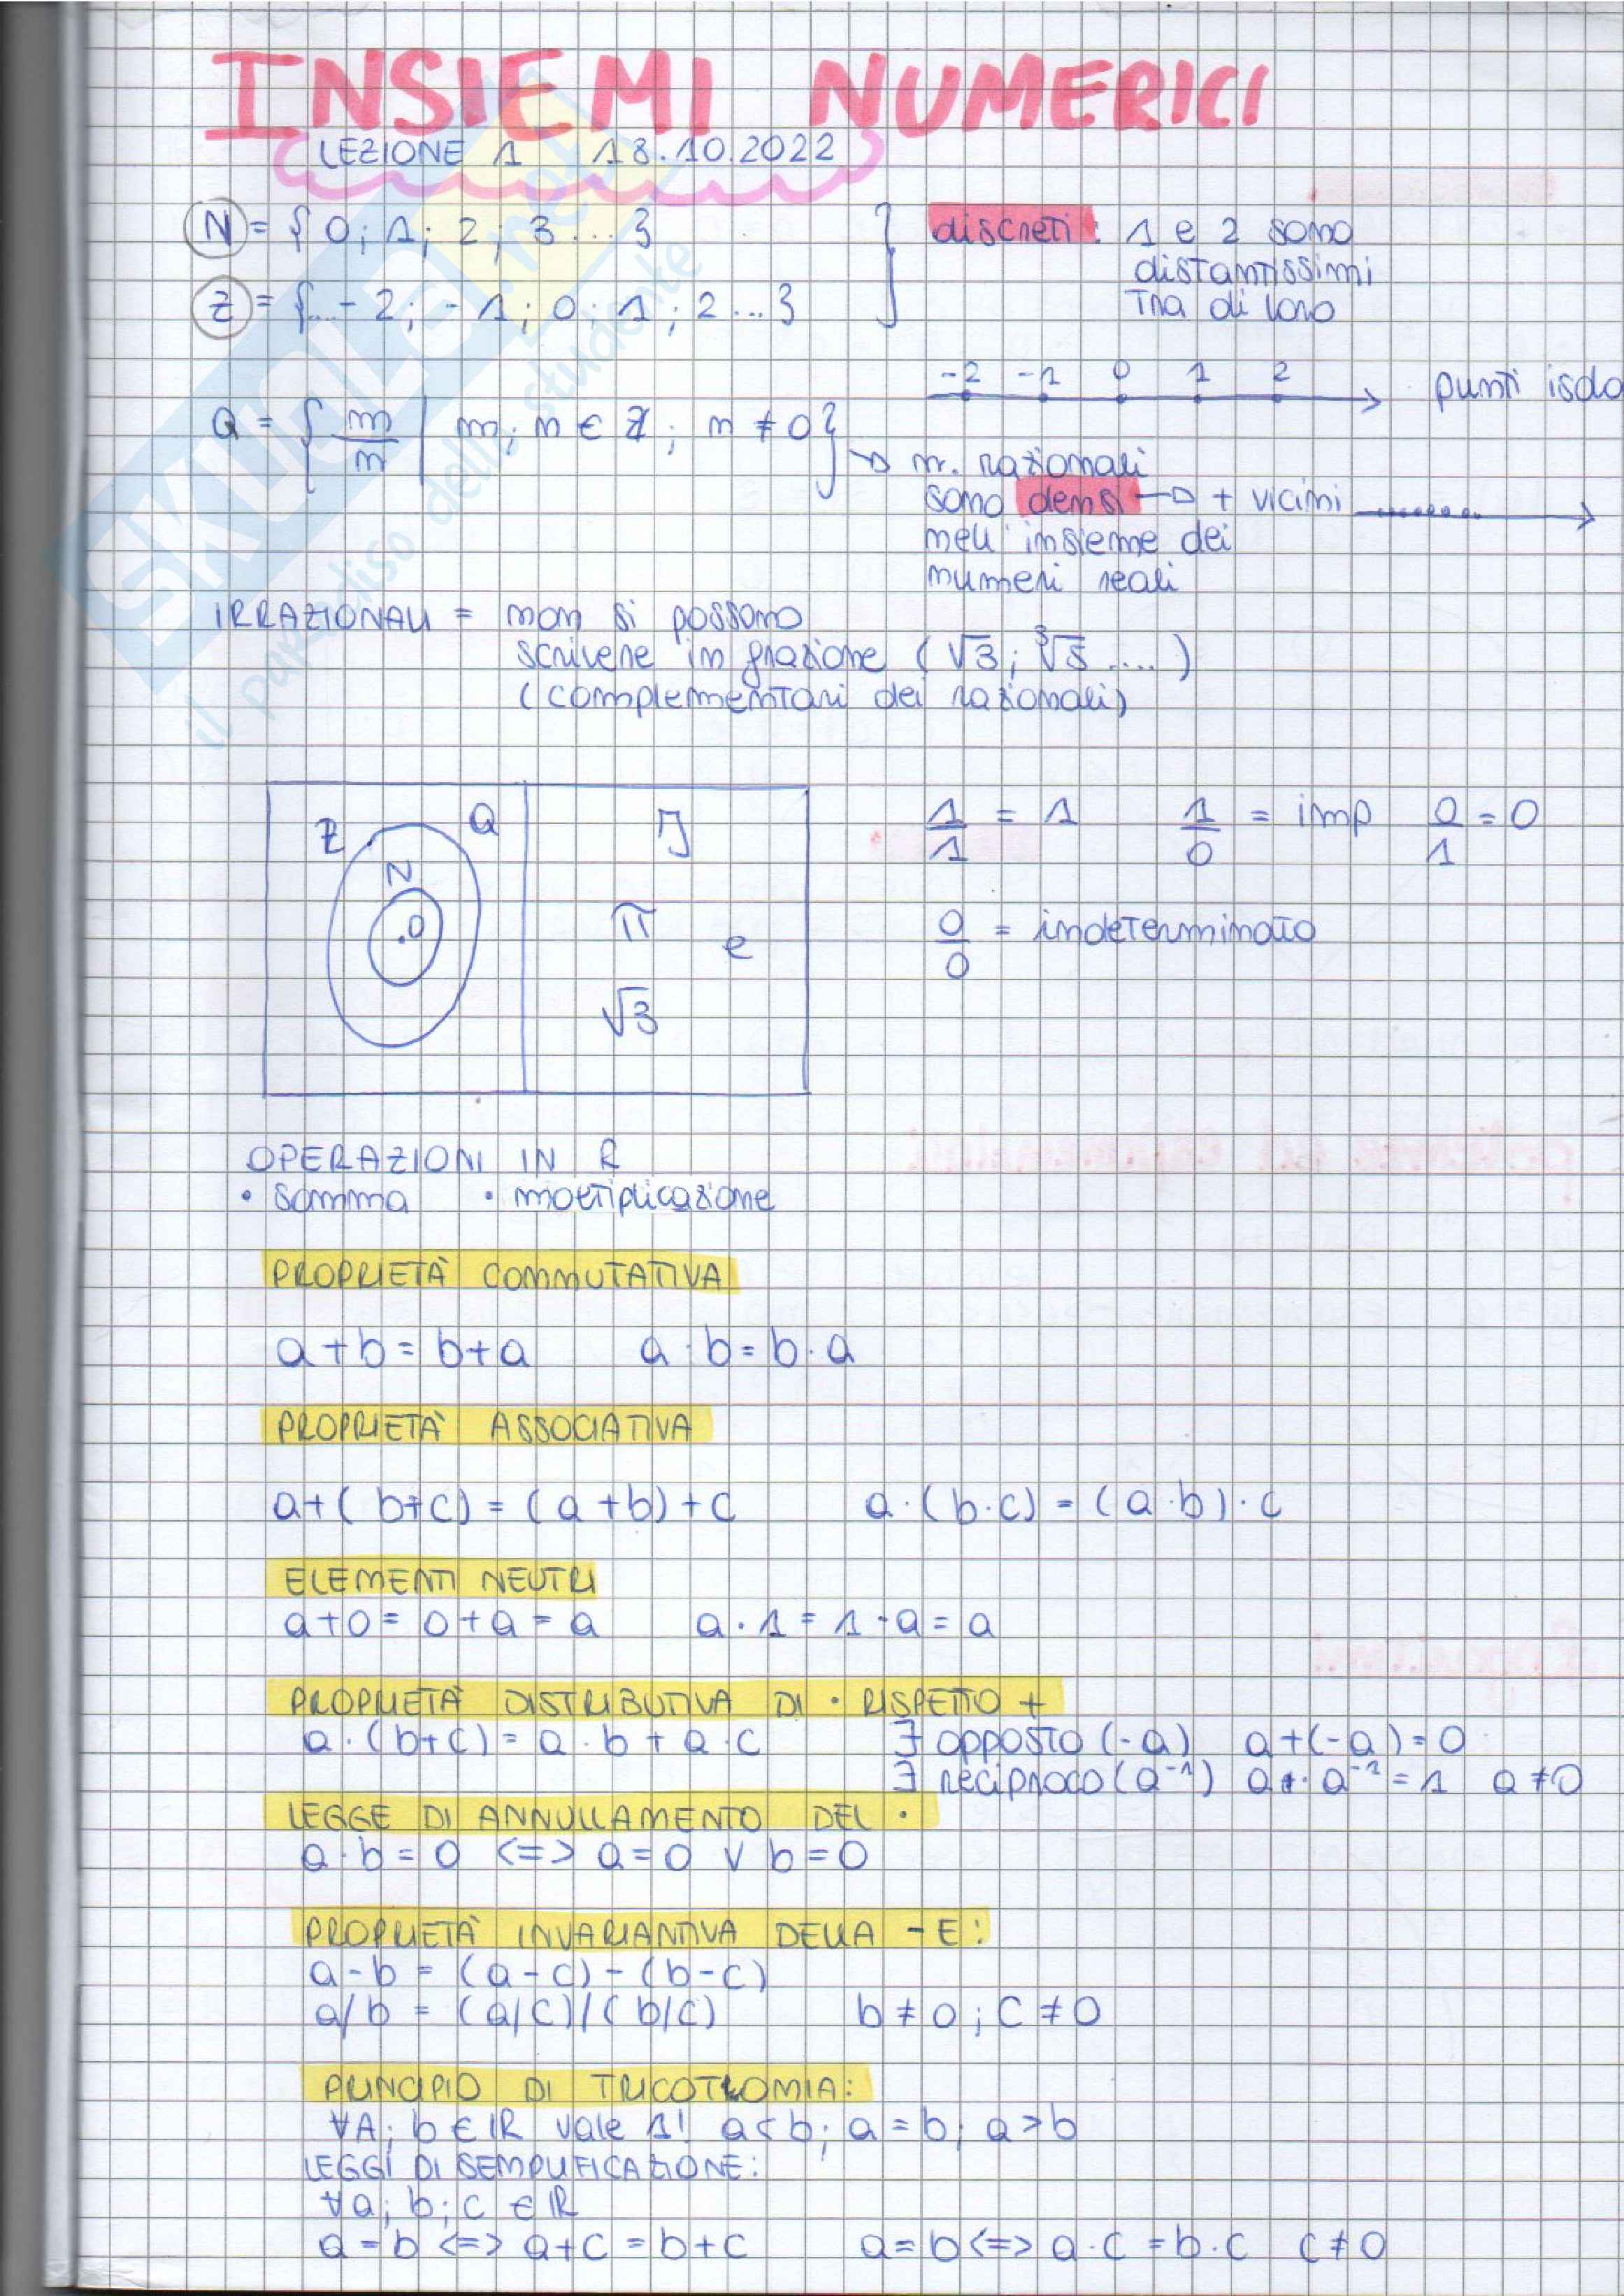 INSIEMI NUMERICI
LEZIONE 1 18.10.2022
N = { 0; 1; 2; 3... }
Z = {...-2; -1; 0; 1; 2...}
discreti: 1 e 2 sono
distantissimi
tra di loro
-2 -1 0 1 2
punti isola
Q = { m/n | m; n ∈ Z; n ≠ 0}
nr. razionali
sono densi → + vicini
nell'insieme dei
numeri reali
IRRAZIONALI = non si possono
scrivere in frazione (√3; ∛5 ....)
(complementari dei razionali)
Z Q J
N
.0 π e
√3
1/1 = 1 1/0 = imp 0/1 = 0
0/0 = indeterminato
OPERAZIONI IN R
• somma • moltiplicazione
PROPRIETÀ COMMUTATIVA
a+b = b+a a·b = b·a
PROPRIETÀ ASSOCIATIVA
a+(b+c) = (a+b)+c a·(b·c) = (a·b)·c
ELEMENTI NEUTRI
a+0 = 0+a = a a·1 = 1·a = a
PROPRIETÀ DISTRIBUTIVA DI · RISPETTO +
a·(b+c) = a·b + a·c ∃ opposto (-a) a+(-a) = 0
∃ reciproco (a⁻¹) a·a⁻¹ = 1 a≠0
LEGGE DI ANNULLAMENTO DEL ·
a·b = 0 <=> a=0 ∨ b=0
PROPRIETÀ INVARIANTIVA DELLA - E :
a-b = (a-c)-(b-c)
a/b = (a/c)/(b/c) b≠0; c≠0
PRINCIPIO DI TRICOTOMIA:
∀A; b ∈ IR vale 1! a<b; a=b; a>b
LEGGI DI SEMPLIFICAZIONE:
∀a; b; c ∈ IR
a=b <=> a+c = b+c a=b <=> a·c = b·c c≠0
SKUOLA.net
il paradiso dello studente